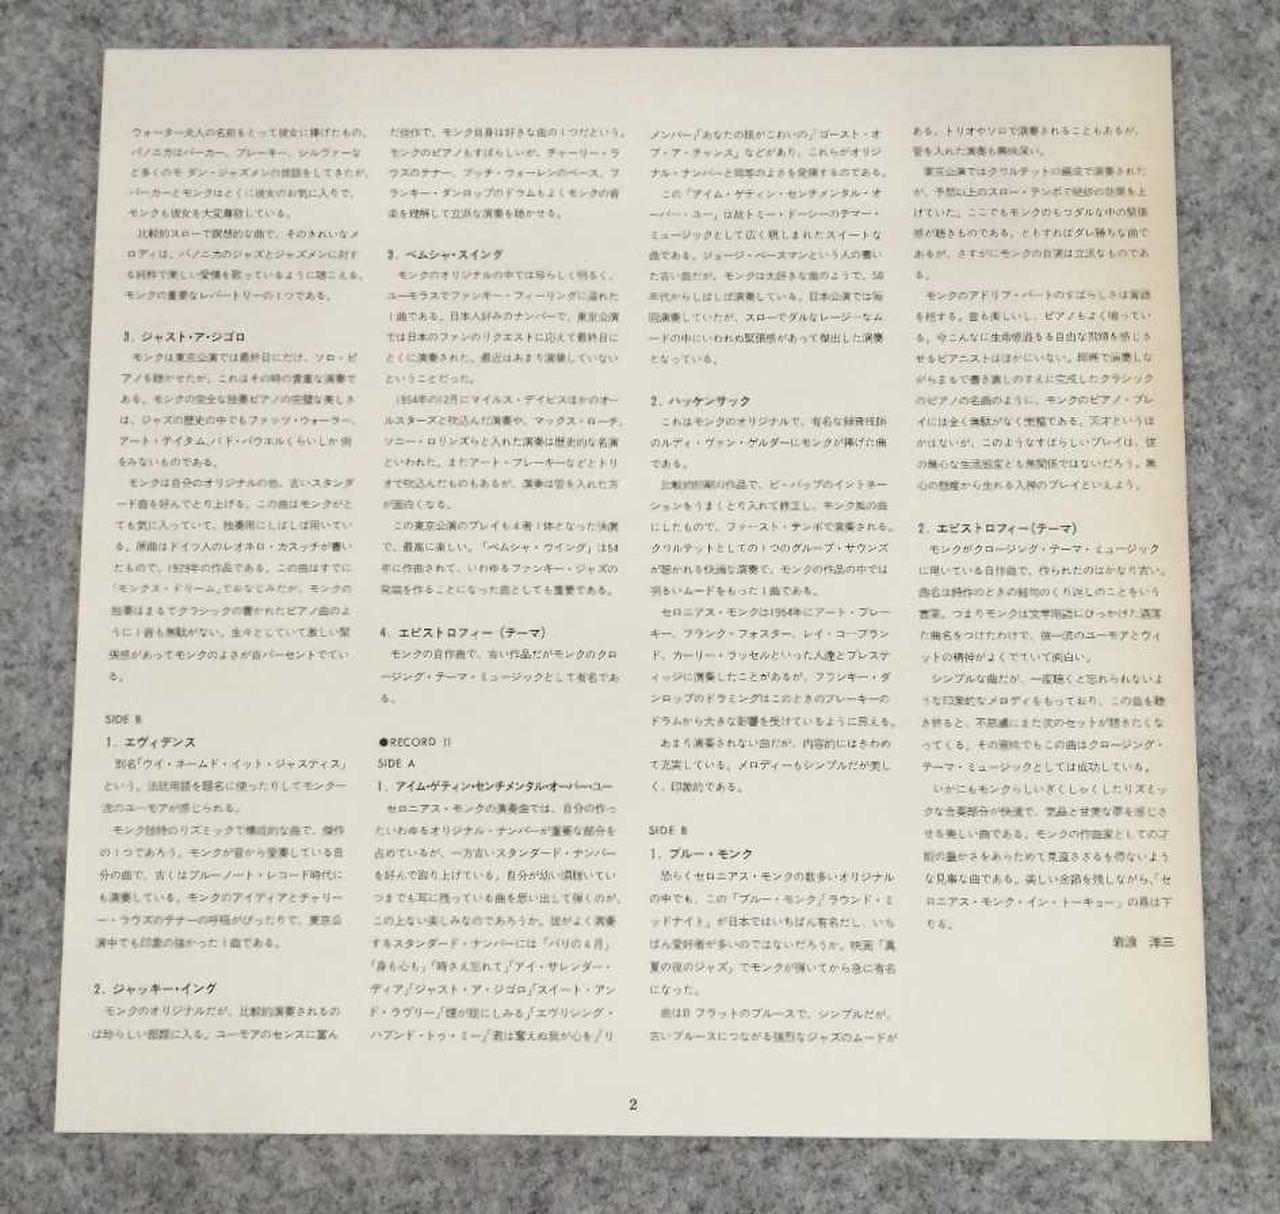 ウォーター夫人の名前をとって彼女に捧げたもの。
パノニカはパーカー、ブレーキー、シルヴァーな
ど多くのモダン・ジャズメンの世話をしてきたが、
パーカーとモンクはとくに彼女のお気に入りで、
モンクも彼女を大変尊敬している。
比較的スローで瞑想的な曲で、そのきれいなメ
ロディは、パノニカのジャズとジャズメンに対す
る純粋で美しい愛情を歌っているように聴こえる。
モンクの重要なレパートリーの1つである。
3. ジャスト・ア・ジゴロ
モンクは東京公演では最終日にだけ、ソロ・ピ
アノを聴かせたが、これはその時の貴重な演奏で
ある。モンクの完全な独奏ピアノの完璧な美しさ
は、ジャズの歴史の中でもファッツ・ウォーラー、
アート・テイタム、バド・パウエルくらいしか例
をみないものである。
モンクは自分のオリジナルの他、古いスタンダ
ード曲を好んでとり上げる。この曲はモンクがと
ても気に入っていて、独奏用にしばしば用いてい
る。原曲はドイツ人のレオネロ・カスッチが書い
たもので、1929年の作品である。この曲はすでに
「モンクス・ドリーム」でおなじみだが、モンクの
独奏はまるでクラシックの書かれたピアノ曲のよ
うに1音も無駄がない。生々としていて激しい緊
張感があってモンクのよさが百パーセントでてい
る。
SIDE B
1. エヴィデンス
別名「ウイ・ネームド・イット・ジャスティス」
という。法廷用語を題名に使ったりしてモンク一
流のユーモアが感じられる。
モンク独特のリズミックで構成的な曲で、傑作
の1つであろう。モンクが昔から愛奏している自
分の曲で、古くはブルーノート・レコード時代に
も演奏している。モンクのアイディアとチャーリ
ー・ラウズのテナーの呼吸がぴったりで、東京公
演中でも印象の強かった1曲である。
2. ジャッキー・イング
モンクのオリジナルだが、比較的演奏されるの
は珍らしい部類に入る。ユーモアのセンスに富ん
だ佳作で、モンク自身は好きな曲の1つだという。
モンクのピアノもすばらしいが、チャーリー・ラ
ウズのテナー、ブッチ・ウォーレンのベース、フ
ランキー・ダンロップのドラムもよくモンクの音
楽を理解して立派な演奏を聴かせる。
3. ベムシャ・スイング
モンクのオリジナルの中では珍らしく明るく、
ユーモラスでファンキー・フィーリングに溢れた
1曲である。日本人好みのナンバーで、東京公演
では日本のファンのリクエストに応えて最終日に
とくに演奏された。最近はあまり演奏していない
ということだった。
1954年の12月にマイルス・デイビスほかのオー
ルスターズと吹込んだ演奏や、マックス・ローチ、
ソニー・ロリンズらと入れた演奏は歴史的な名演
といわれた。またアート・ブレーキーなどとトリ
オで吹込んだものもあるが、演奏は管を入れた方
が面白くなる。
この東京公演のプレイも4者1体となった快演
で、最高に楽しい。「ベムシャ・ウイング」は54
年に作曲されて、いわゆるファンキー・ジャズの
発端を作ることになった曲としても重要である。
4. エピストロフィー（テーマ）
モンクの自作曲で、古い作品だがモンクのクロ
ージング・テーマ・ミュージックとして有名であ
る。
●RECORD II
SIDE A
1. アイム・ゲティン・センチメンタル・オーバー・ユー
セロニアス・モンクの演奏曲では、自分の作っ
たいわゆるオリジナル・ナンバーが重要な部分を
占めているが、一方古いスタンダード・ナンバー
を好んで取り上げている。自分が幼い頃聴いてい
つまでも耳に残っている曲を思い出して弾くのが、
この上ない楽しみなのであろうか。彼がよく演奏
するスタンダード・ナンバーには「パリの4月」
「身も心も」「時さえ忘れて」「アイ・サレンダー・
ディア」「ジャスト・ア・ジゴロ」「スイート・アン
ド・ラヴリー」「煙が眼にしみる」「エヴリシング・
ハプンド・トゥ・ミー」「君は奪えぬ我が心を」「リ
メンバー」「あなたの眼がこわいの」「ゴースト・オ
ブ・ア・チャンス」などがあり、これらがオリジ
ナル・ナンバーと同等のよさを発揮するのである。
この「アイム・ゲティン・センチメンタル・オ
ーバー・ユー」は故トミー・ドーシーのテーマー・
ミュージックとして広く親しまれたスイートな
曲である。ジョージ・ベースマンという人の書い
た古い曲だが、モンクは大好きな曲のようで、50
年代からしばしば演奏している。日本公演では毎
回演奏していたが、スローでダルなレージーなム
ードの中にいわれぬ緊張感があって傑出した演奏
となっている。
2. ハッケンサック
これはモンクのオリジナルで、有名な録音技師
のルディ・ヴァン・ゲルダーにモンクが捧げた曲
である。
比較的初期の作品で、ビ・バップのイントネー
ションをうまくとり入れて修正し、モンク風の曲
にしたもので、ファースト・テンポで演奏される。
クワルテットとしての1つのグループ・サウンズ
が聴かれる快適な演奏で、モンクの作品の中では
明るいムードをもった1曲である。
セロニアス・モンクは1954年にアート・ブレー
キー、フランク・フォスター、レイ・コープラン
ド、カーリー・ラッセルといった人達とプレステ
ィッジに演奏したことがあるが、フランキー・ダ
ンロップのドラミングはこのときのブレーキーの
ドラムから大きな影響を受けているように思える。
あまり演奏されない曲だが、内容的にはきわめ
て充実している。メロディーもシンプルだが美し
く、印象的である。
SIDE B
1. ブルー・モンク
恐らくセロニアス・モンクの数多いオリジナル
の中でも、この「ブルー・モンク」「ラウンド・ミ
ッドナイト」が日本ではいちばん有名だし、いち
ばん愛好者が多いのではないだろうか。映画「真
夏の夜のジャズ」でモンクが弾いてから急に有名
になった。
曲はBフラットのブルースで、シンプルだが、
古いブルースにつながる強烈なジャズのムードが
ある。トリオやソロで演奏されることもあるが、
管を入れた演奏も興味深い。
東京公演ではクワルテットの編成で演奏された
が、予想以上のスロー・テンポで絶妙の効果を上
げていた。ここでもモンクのもつダルな中の緊張
感が聴きものである。ともすればダレ勝ちな曲で
あるが、さすがにモンクの自演は立派なものであ
る。
モンクのアドリブ・パートのすばらしさは言語
を絶する。音も美しいし、ピアノもよく鳴ってい
る。今こんなに生命感溢るる自由な飛翔を感じさ
せるピアニストはほかにいない。即席で演奏しな
がらまるで書き直しのすえに完成したクラシック
のピアノの名曲のように、モンクのピアノ・プレ
イには全く無駄がなく完璧である。天才というほ
かはないが、このようなすばらしいプレイは、彼
の無心な生活態度とも無関係ではないだろう。無
心の態度から生れる入神のプレイといえよう。
2. エピストロフィー（テーマ）
モンクがクロージング・テーマ・ミュージック
に用いている自作曲で、作られたのはかなり古い。
曲名は詩作のときの結句のくり返しのことをいう
言葉。つまりモンクは文学用語にひっかけた洒落
た曲名をつけたわけで、彼一流のユーモアとウィ
ットの精神がよくでていて面白い。
シンプルな曲だが、一度聴くと忘れられないよ
うな印象的なメロディをもっており、この曲を聴
き終ると、不思議にまた次のセットが聴きたくな
ってくる。その意味でもこの曲はクロージング・
テーマ・ミュージックとしては成功している。
いかにもモンクらしいぎくしゃくしたリズミッ
クな合奏部分が快適で、気品と甘美な夢を感じさ
せる美しい曲である。モンクの作曲家としての才
能の豊かさをあらためて見直さざるを得ないよう
な見事な曲である。美しい余韻を残しながら、「セ
ロニアス・モンク・イン・トーキョー」の幕は下
りる。
岩浪 洋三
2